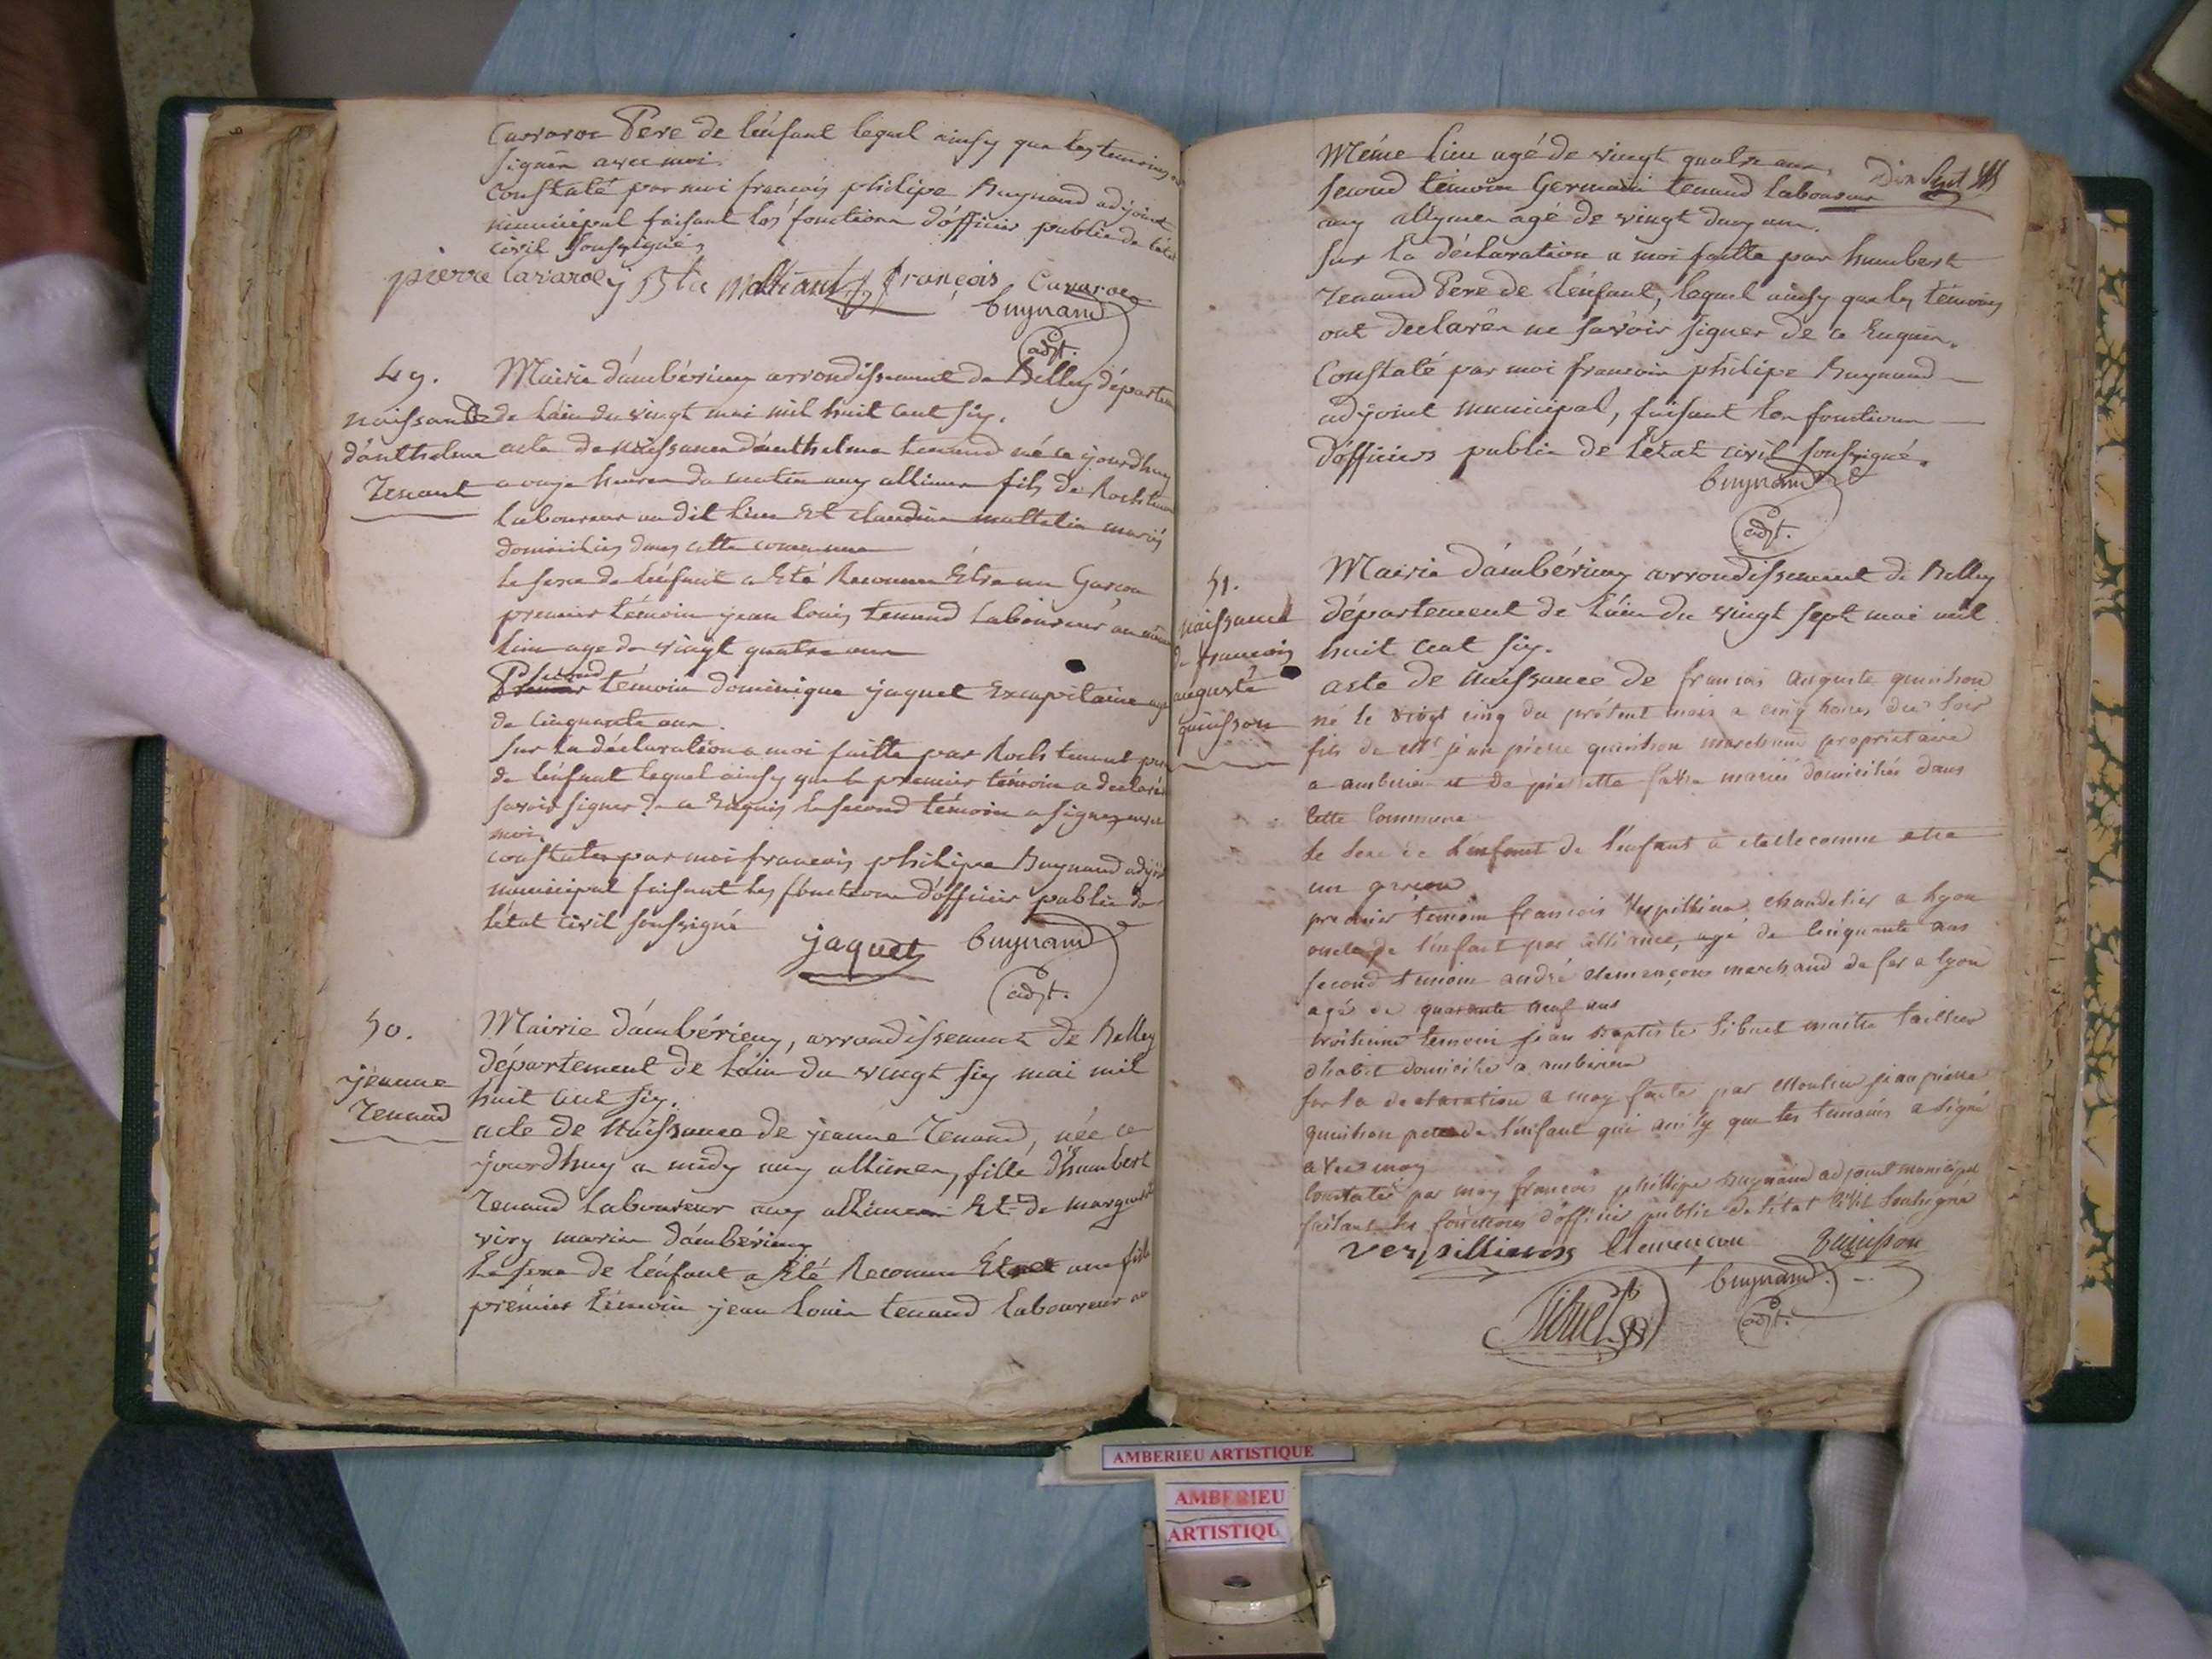 Pere de l'enfant lequel ainsy que les temoins
signén avec moi
Constaté par moi francois philipe Buynand adjoint
municipal faisant les fonctions d'officier public de l'état
civil soussigné,
pierre Cavaroc j Bte françois Cavaroc
buynand
adjt.
49.
naissance
d'anthelme
Tenant
Mairie d'ambérieux arrondissement de Belley départem
de l'ain du vingt mai mil huit cent six.
acte de naissance d'anthelme tenand né ce jourdhuy
a onze heures du matin aux allimes fils de Roch
laboureur au dit lieu Et claudine mariés
domiciliés dans cette commune
le sexe de l'enfant a Eté Reconnu Etre un Garçon
premier témoin jean louis tenand laboureur au même
lieu age de vingt quatre ans
second témoin dominique jaquet Excapitaine agé
de cinquante ans.
sur la déclaration a moi faitte par Roch tenant père
de l'enfant lequel ainsy que le premier témoin a declaré
savoir signer de ce Enquis le second témoin a signé avec
moi.
constaté par moi francois philipe Buynand adjt
municipal faisant les fonctions d'officier public de
l'état civil soussigné
jaquet buynand
adjt.
50.
jeanne
Tenand
Mairie d'ambérieux, arrondissement de Belley
département de l'ain du vingt six mai mil
huit cent six.
acte de Naissance de jeanne Tenand, née ce
jourdhuy a midy aux allimes, fille d'humbert
Tenand laboureur aux allimes Et de
mariés d'ambérieux
le sexe de l'enfant a Eté Reconnu Etre une fille
premier témoin jean louis tenand laboureur au
Dix Sept
Même lieu agé de vingt quatre ans,
second témoin Germain tenand laboureur
aux allymes agé de vingt deux ans.
sur la déclaration a moi faitte par humbert
Tenand Pere de l'enfant, lequel ainsy que les témoins
ont declarén ne savoir signer de ce Enquis.
Constaté par moi francois philipe Buynand
adjoint municipal, faisant les fonctions
d'officiers public de l'état civil soussigné.
buynand
adjt.
51.
naissance
de francois
auguste
quinsson
Mairie d'ambérieux arrondissement de Belley
département de l'ain du vingt sept mai mil
huit cent six.
acte de Naissance de francois auguste quinson
né le vingt cinq du présent mois a cinq heures du soir
fils de Mr jean pierre quinson marchand propriétaire
a amberieu et de pierrette mariés domiciliés dans
cette Commune
le sexe de l'enfant de l'enfant a eté reconnu etre
un garçon
premier temoin francois Verpillieux chandelier a Lyon
oncle de l'enfant par alliance, agé de cinquante ans
second temoin andré clemençon marchand de fer a lyon
agé de quarante neuf ans
troisieme temoin jean baptiste Sibuet maitre tailleur
d'habit domicilié a amberieu
sur la declaration a moy faite par jean pierre
quinson pere de l'enfant qui ainsy que les temoins a signé
avec moy
Constaté par moy francois phillipe buynand adjoint municipal
faisant les fonctions d'officier public de l'état civil soussigné
Clemencon Quinsson
Sibuet buynand
adjt.
AMBERIEU ARTISTIQUE
AMBERIEU
ARTISTIQU